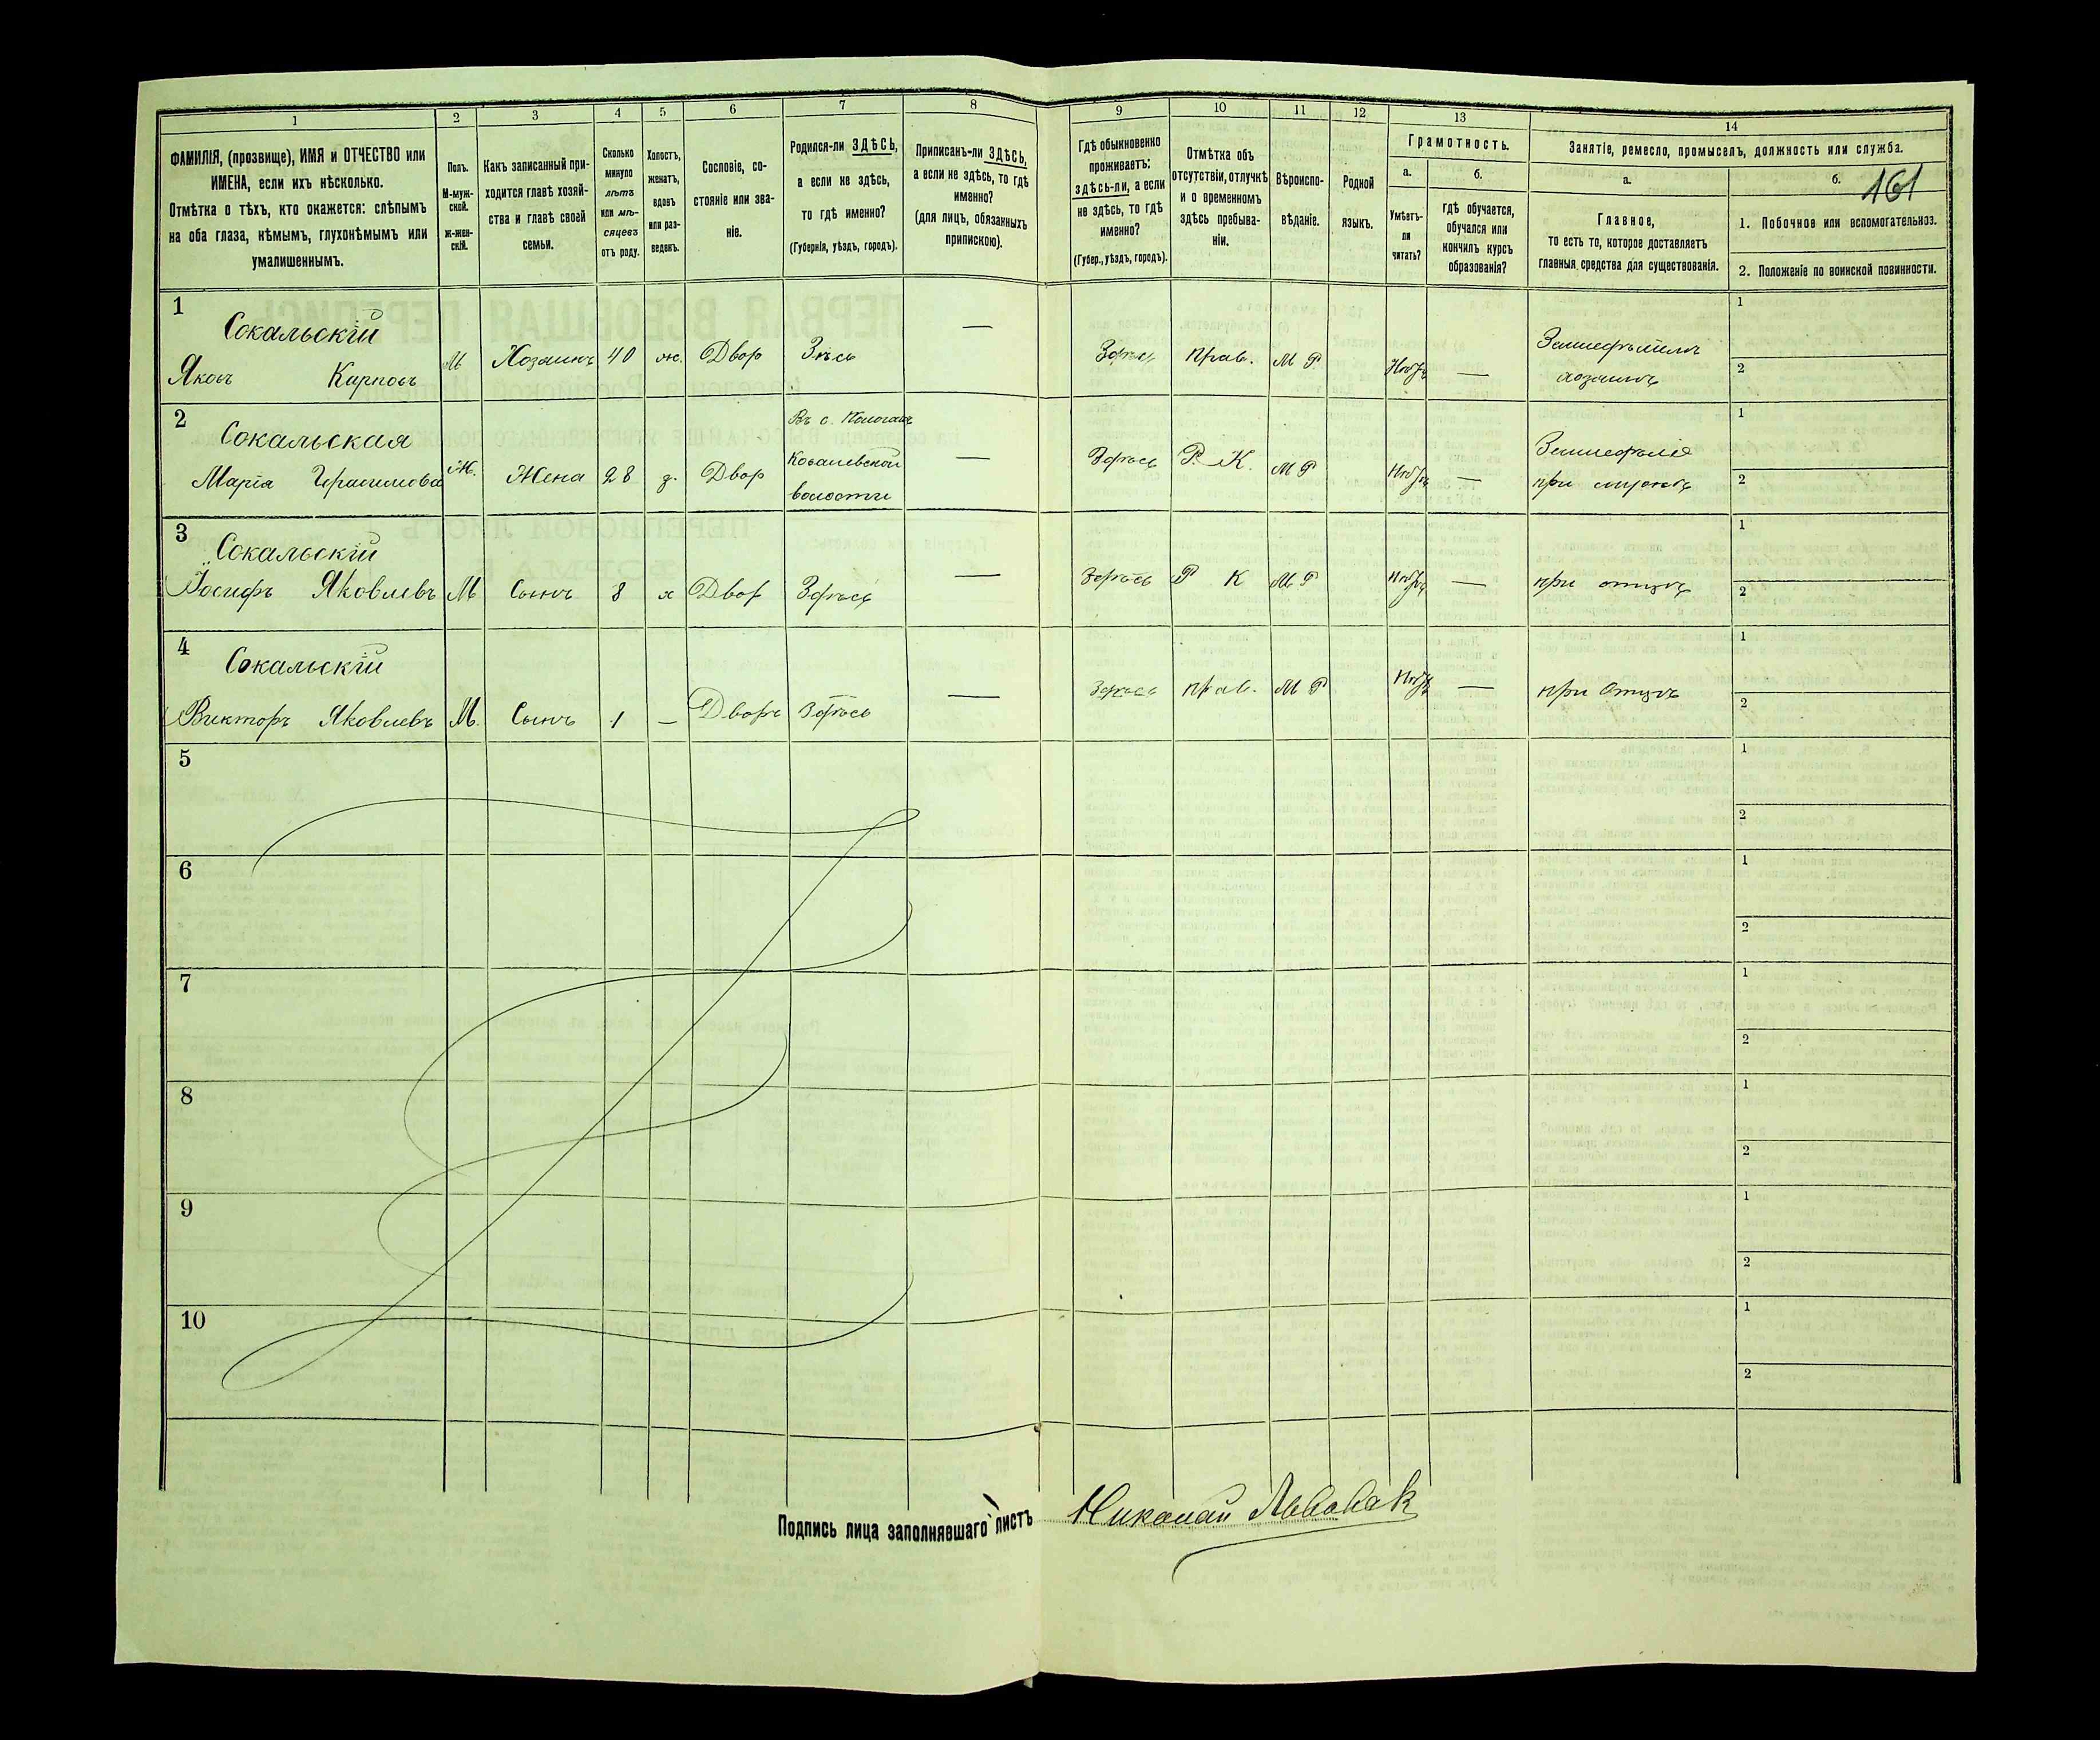 1
2
3
4
5
6
7
8
9
10
11
12
13
14
ФАМИЛІЯ, (прозвище), ИМЯ и ОТЧЕСТВО или
ИМЕНА, если ихъ нѣсколько.
Отмѣтка о тѣхъ, кто окажется: слѣпымъ
на оба глаза, нѣмымъ, глухонѣмымъ или
умалишеннымъ.
Полъ.
М-муж-
ской.
Ж-жен-
скій.
Какъ записанный при-
ходится главѣ хозяй-
ства и главѣ своей
семьи.
Сколько
минуло
лѣтъ
или мѣ-
сяцевъ
отъ роду.
Холостъ,
женатъ,
вдовъ
или раз-
веденъ.
Сословіе, со-
стояніе или зва-
ніе.
Родился-ли ЗДѢСЬ,
а если не здѣсь,
то гдѣ именно?
(Губернія, уѣздъ, городъ).
Приписанъ-ли ЗДѢСЬ,
а если не здѣсь, то гдѣ
именно?
(для лицъ, обязанныхъ
припискою).
Гдѣ обыкновенно
проживаетъ:
здѣсь-ли, а если
не здѣсь, то гдѣ
именно?
(Губер., уѣздъ, городъ).
Отмѣтка объ
отсутствіи, отлучкѣ
и о временномъ
здѣсь пребыва-
ніи.
Вѣроиспо-
вѣданіе.
Родной
языкъ.
Грамотность.
а.
Умѣетъ-
ли
читать?
б.
гдѣ обучается,
обучался или
кончилъ курсъ
образованія?
Занятіе, ремесло, промыселъ, должность или служба.
а.
Главное,
то есть то, которое доставляетъ
главныя средства для существованія.
б.
161
1. Побочное или вспомогательное.
2. Положеніе по воинской повинности.
1
Сокальскій
Яковъ Карповъ
М
Хозяинъ
40
ж.
Двор
Здѣсь
—
Здѣсь
прав.
М Р.
—
хозяинъ
1
2
2
Сокальская
Марія Герасимова
Ж.
Жена
28
з.
Двор
Въ с.
Ковалевской
волости
—
Здѣсь
Р. К.
М Р
—
Земледѣліе
при
1
2
3
Сокальскій
Іосифъ Яковлевъ
М
Сынъ
8
х
Двор
Здѣсь
—
Здѣсь
Р К
М Р
—
при отцѣ
1
2
4
Сокальскій
Викторъ Яковлевъ
М.
Сынъ
1
—
Дворъ
Здѣсь
—
Здѣсь
прав.
М Р
—
при Отцѣ
1
2
5
1
2
6
1
2
7
1
2
8
1
2
9
1
2
10
1
2
Подпись лица заполнявшаго листъ
Николай